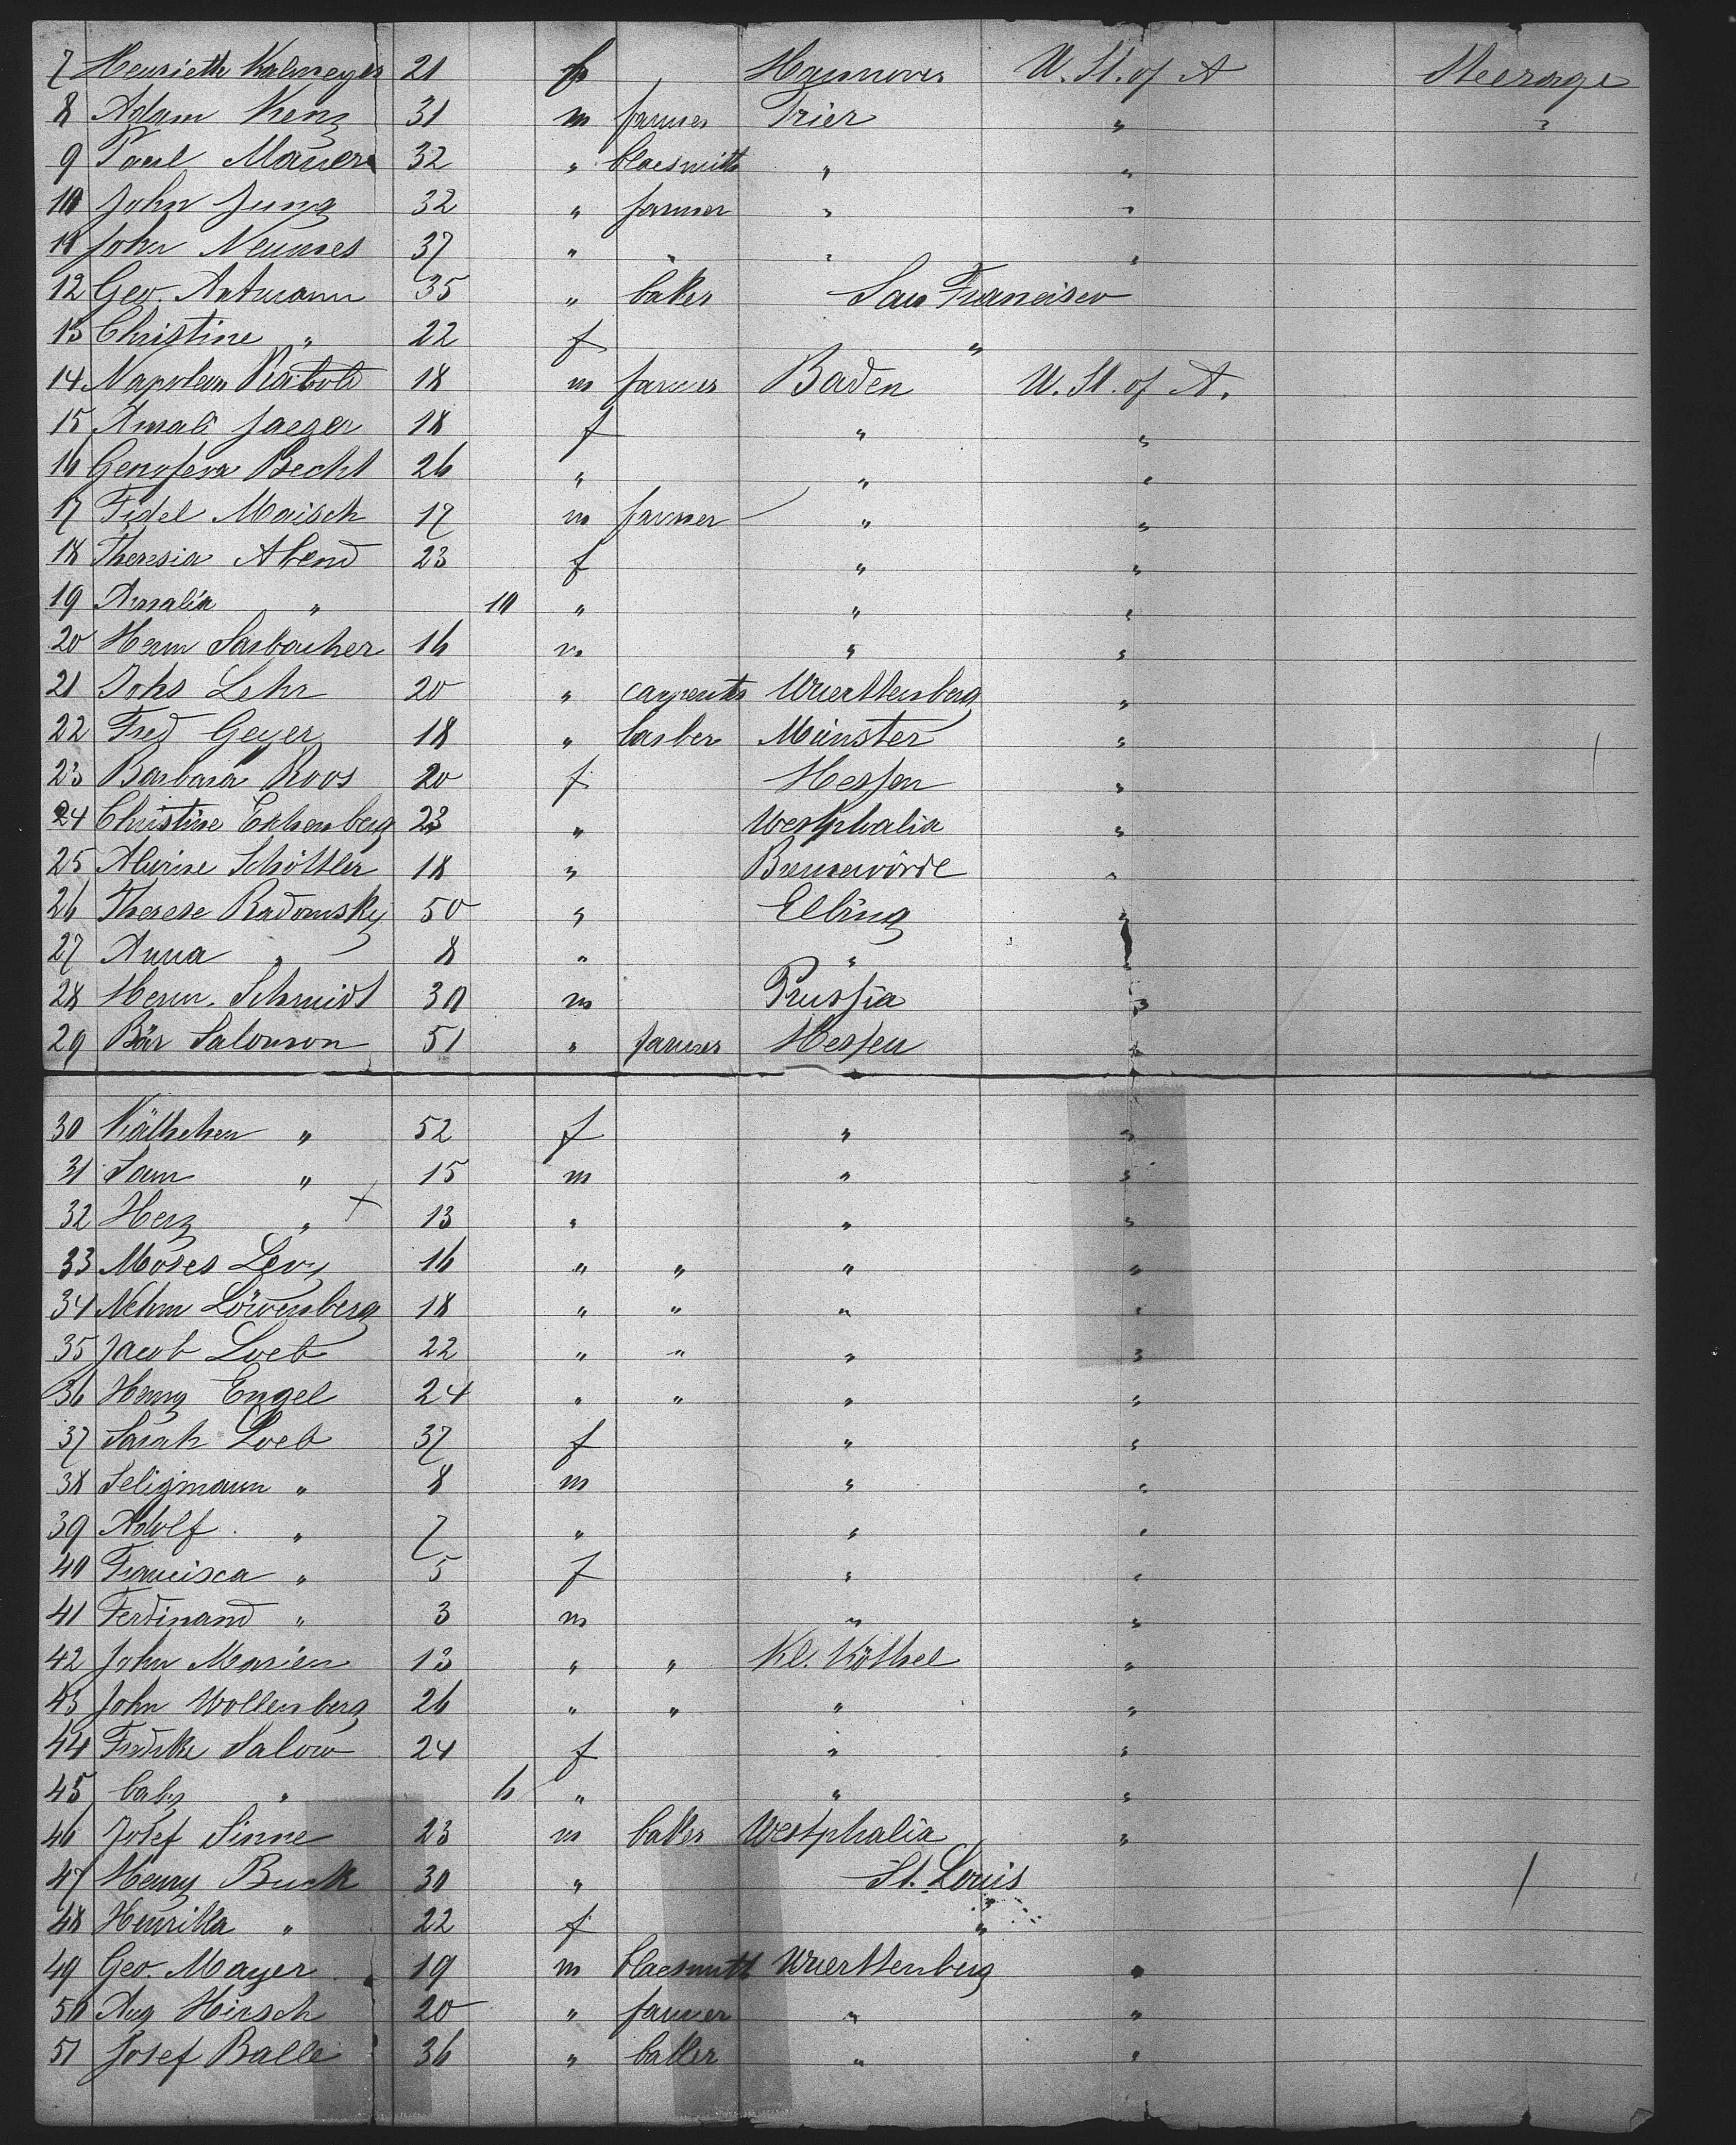 7 Henriette Kalmeyer 21 f Hannover U. St. of A Steerage
8 Adam Kenz 31 m farmer Trier " "
9 Paul Maurer 32 " blacsmith " "
10 John Jung 32 " farmer " "
11 John Neumes 37 " " " "
12 Geo. Antmann 35 " baker San Francisco
13 Christine " 22 f "
14 Napoleon Raibold 18 m farmer Baden U. St. of A.
15 Amali Jaeger 18 f " "
16 Genofeva Becht 26 " " "
17 Fidel Maisch 17 m farmer " "
18 Theresia Abend 23 f " "
19 Amalia " 10 " " "
20 Herm Sasbacher 16 m " "
21 Johs Lehr 20 " carpenter Wuerttenberg "
22 Fred Geyer 18 " barber Münster "
23 Barbara Roos 20 f Hessen "
24 Christine Eickenberg 23 " Westphalia "
25 Alwine Schöttler 18 " Bremervörde "
26 Therese Radomsky 50 " Elbing "
27 Anna " 8 " " "
28 Herm. Schmidt 30 m Prussia "
29 Bär Salomon 51 " farmer Hessen "
30 Käthchen " 52 f " "
31 Sam " 15 m " "
32 Herz " X 13 " " "
33 Moses Levy 16 " " " "
34 Nehm Löwenberg 18 " " " "
35 Jacob Loeb 22 " " " "
36 Henry Engel 24 " " " "
37 Sarah Loeb 37 f " "
38 Seligmann " 8 m " "
39 Adolf " 7 " " "
40 Francisca " 5 f " "
41 Ferdinand " 3 m " "
42 John Marien 13 " " Kl. Köthel "
43 John Wollenberg 26 " " " "
44 Fredrike Salow 24 f " "
45 baby " 6 " " "
46 Josef Sinne 23 m baker Westphalia "
47 Henry Buck 30 " St. Louis
48 Henrikka " 22 f "
49 Geo. Mayer 19 m blacsmith Wuerttenberg "
50 Aug Hirsch 20 " farmer " "
51 Josef Balle 36 " baker " "